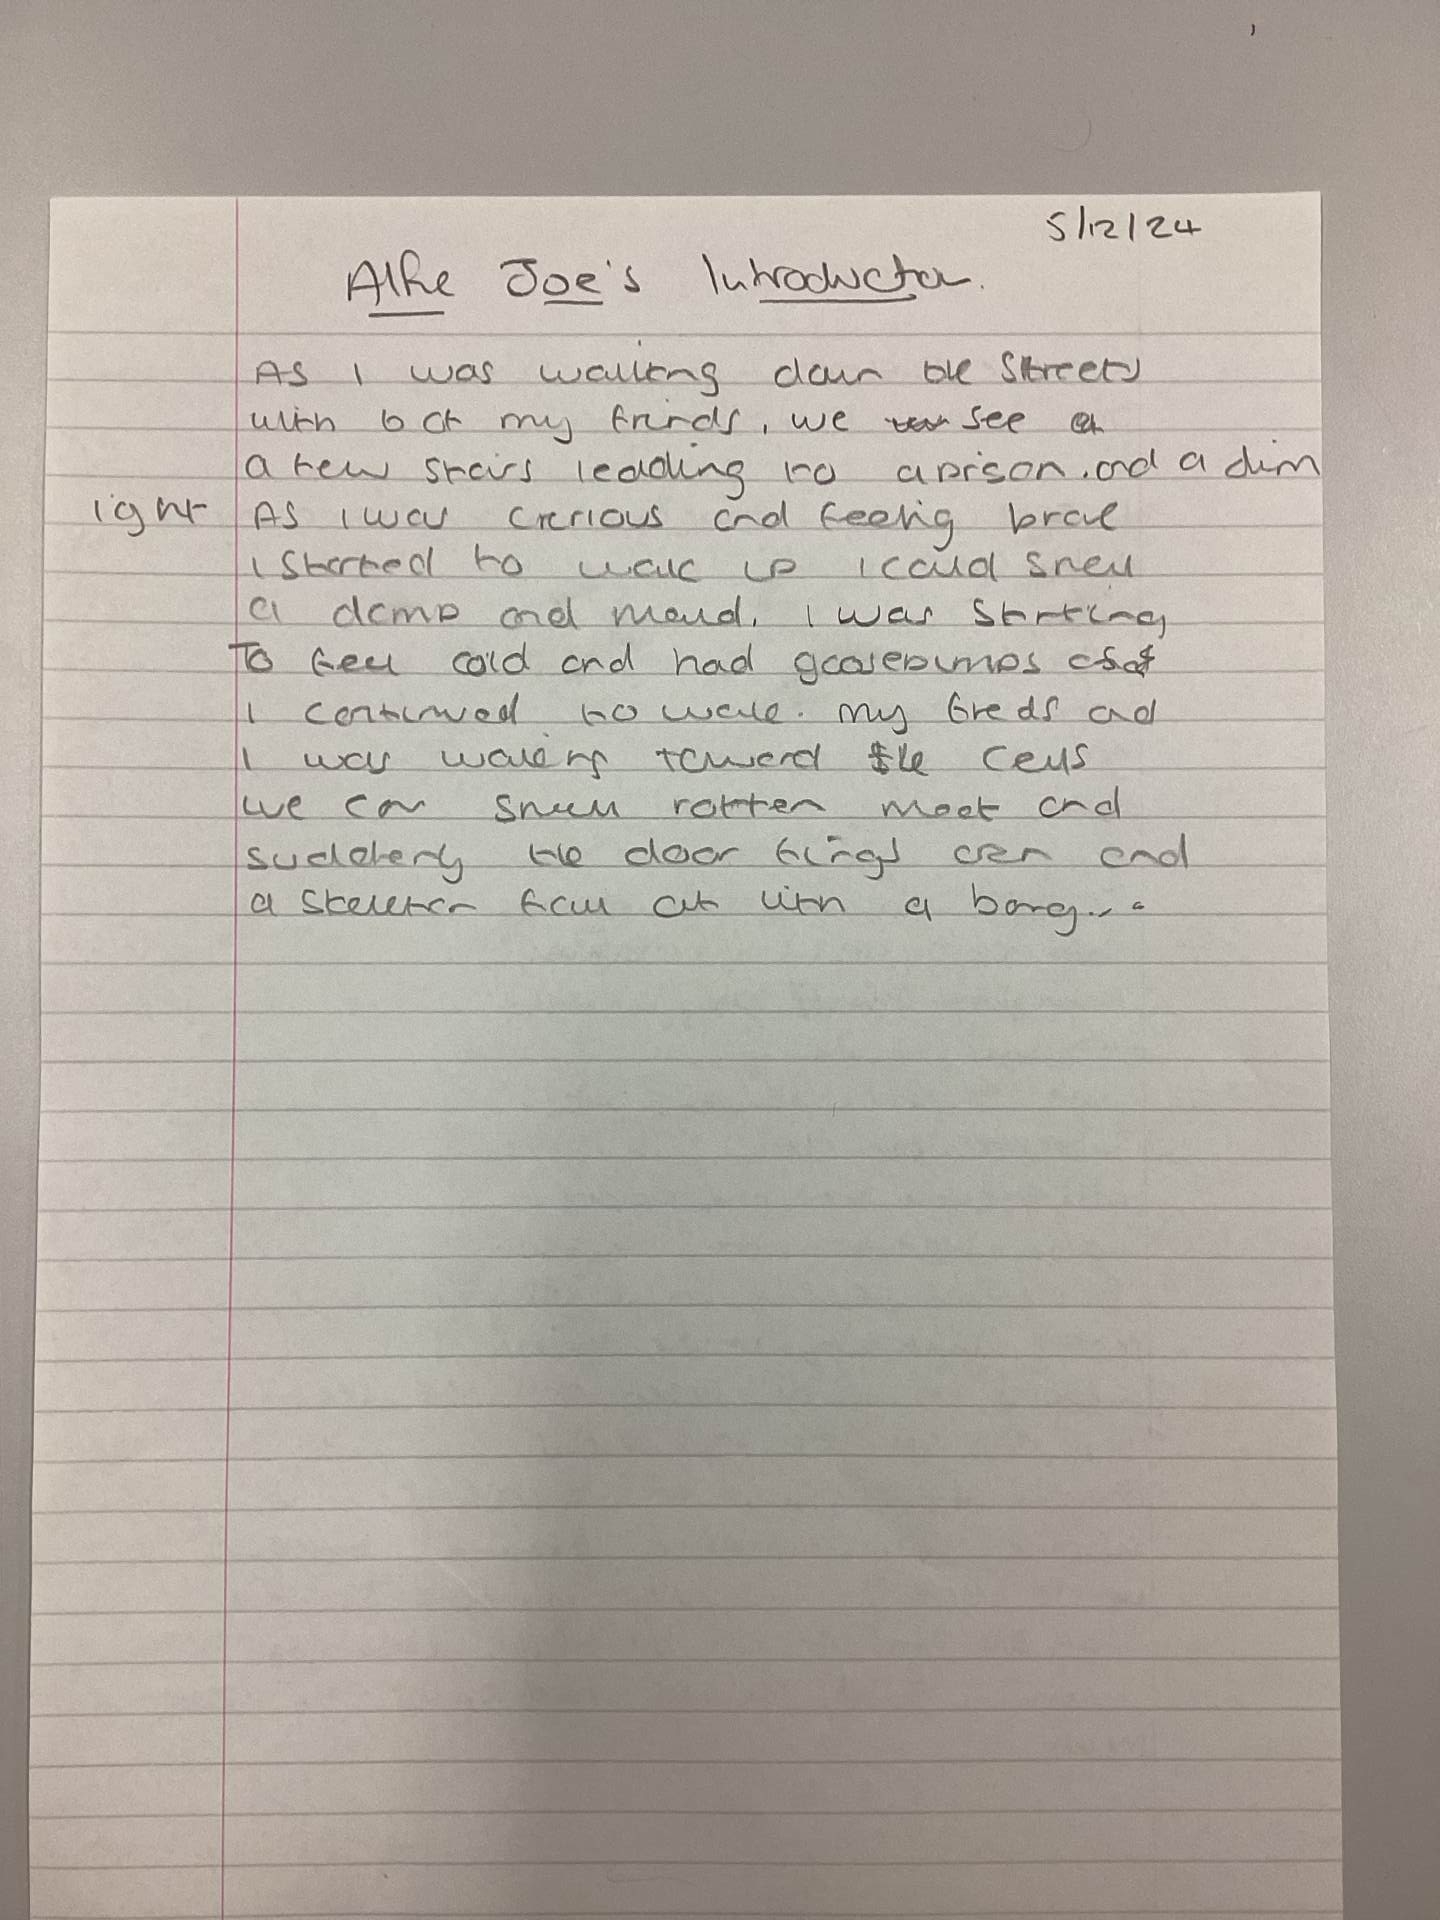 5/12/24
Alfie Joe's Introduction.
As I was walking down the Streets
with 6 of my friends, we see
a few stairs leading to a prison. and a dim
light As I was curious and feeling brave
I started to walk up I could smell
a damp and mould. I was starting
To feel cold and had goosebumps as
I continued to walk. My friends and
I was walking toward the cells
we can smell rotten meat and
suddenly the door flings open and
a skeleton fall out with a bang...